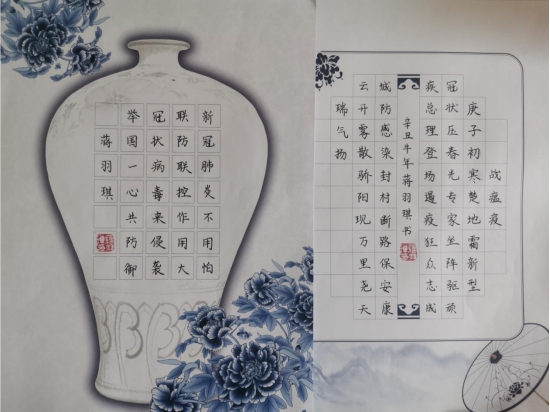 新冠肺炎不用怕
联防联控作用大
冠状病毒来侵袭
举国一心共防御
蒋羽琪
战瘟疫
庚子初寒楚地霜新型
冠状压春光专家坐阵驱顽
疾总理登场遏疫狂众志成
辛丑牛年蒋羽琪书
城防感染封村断路保安康
云开雾散骄阳现万里尧天
瑞气扬